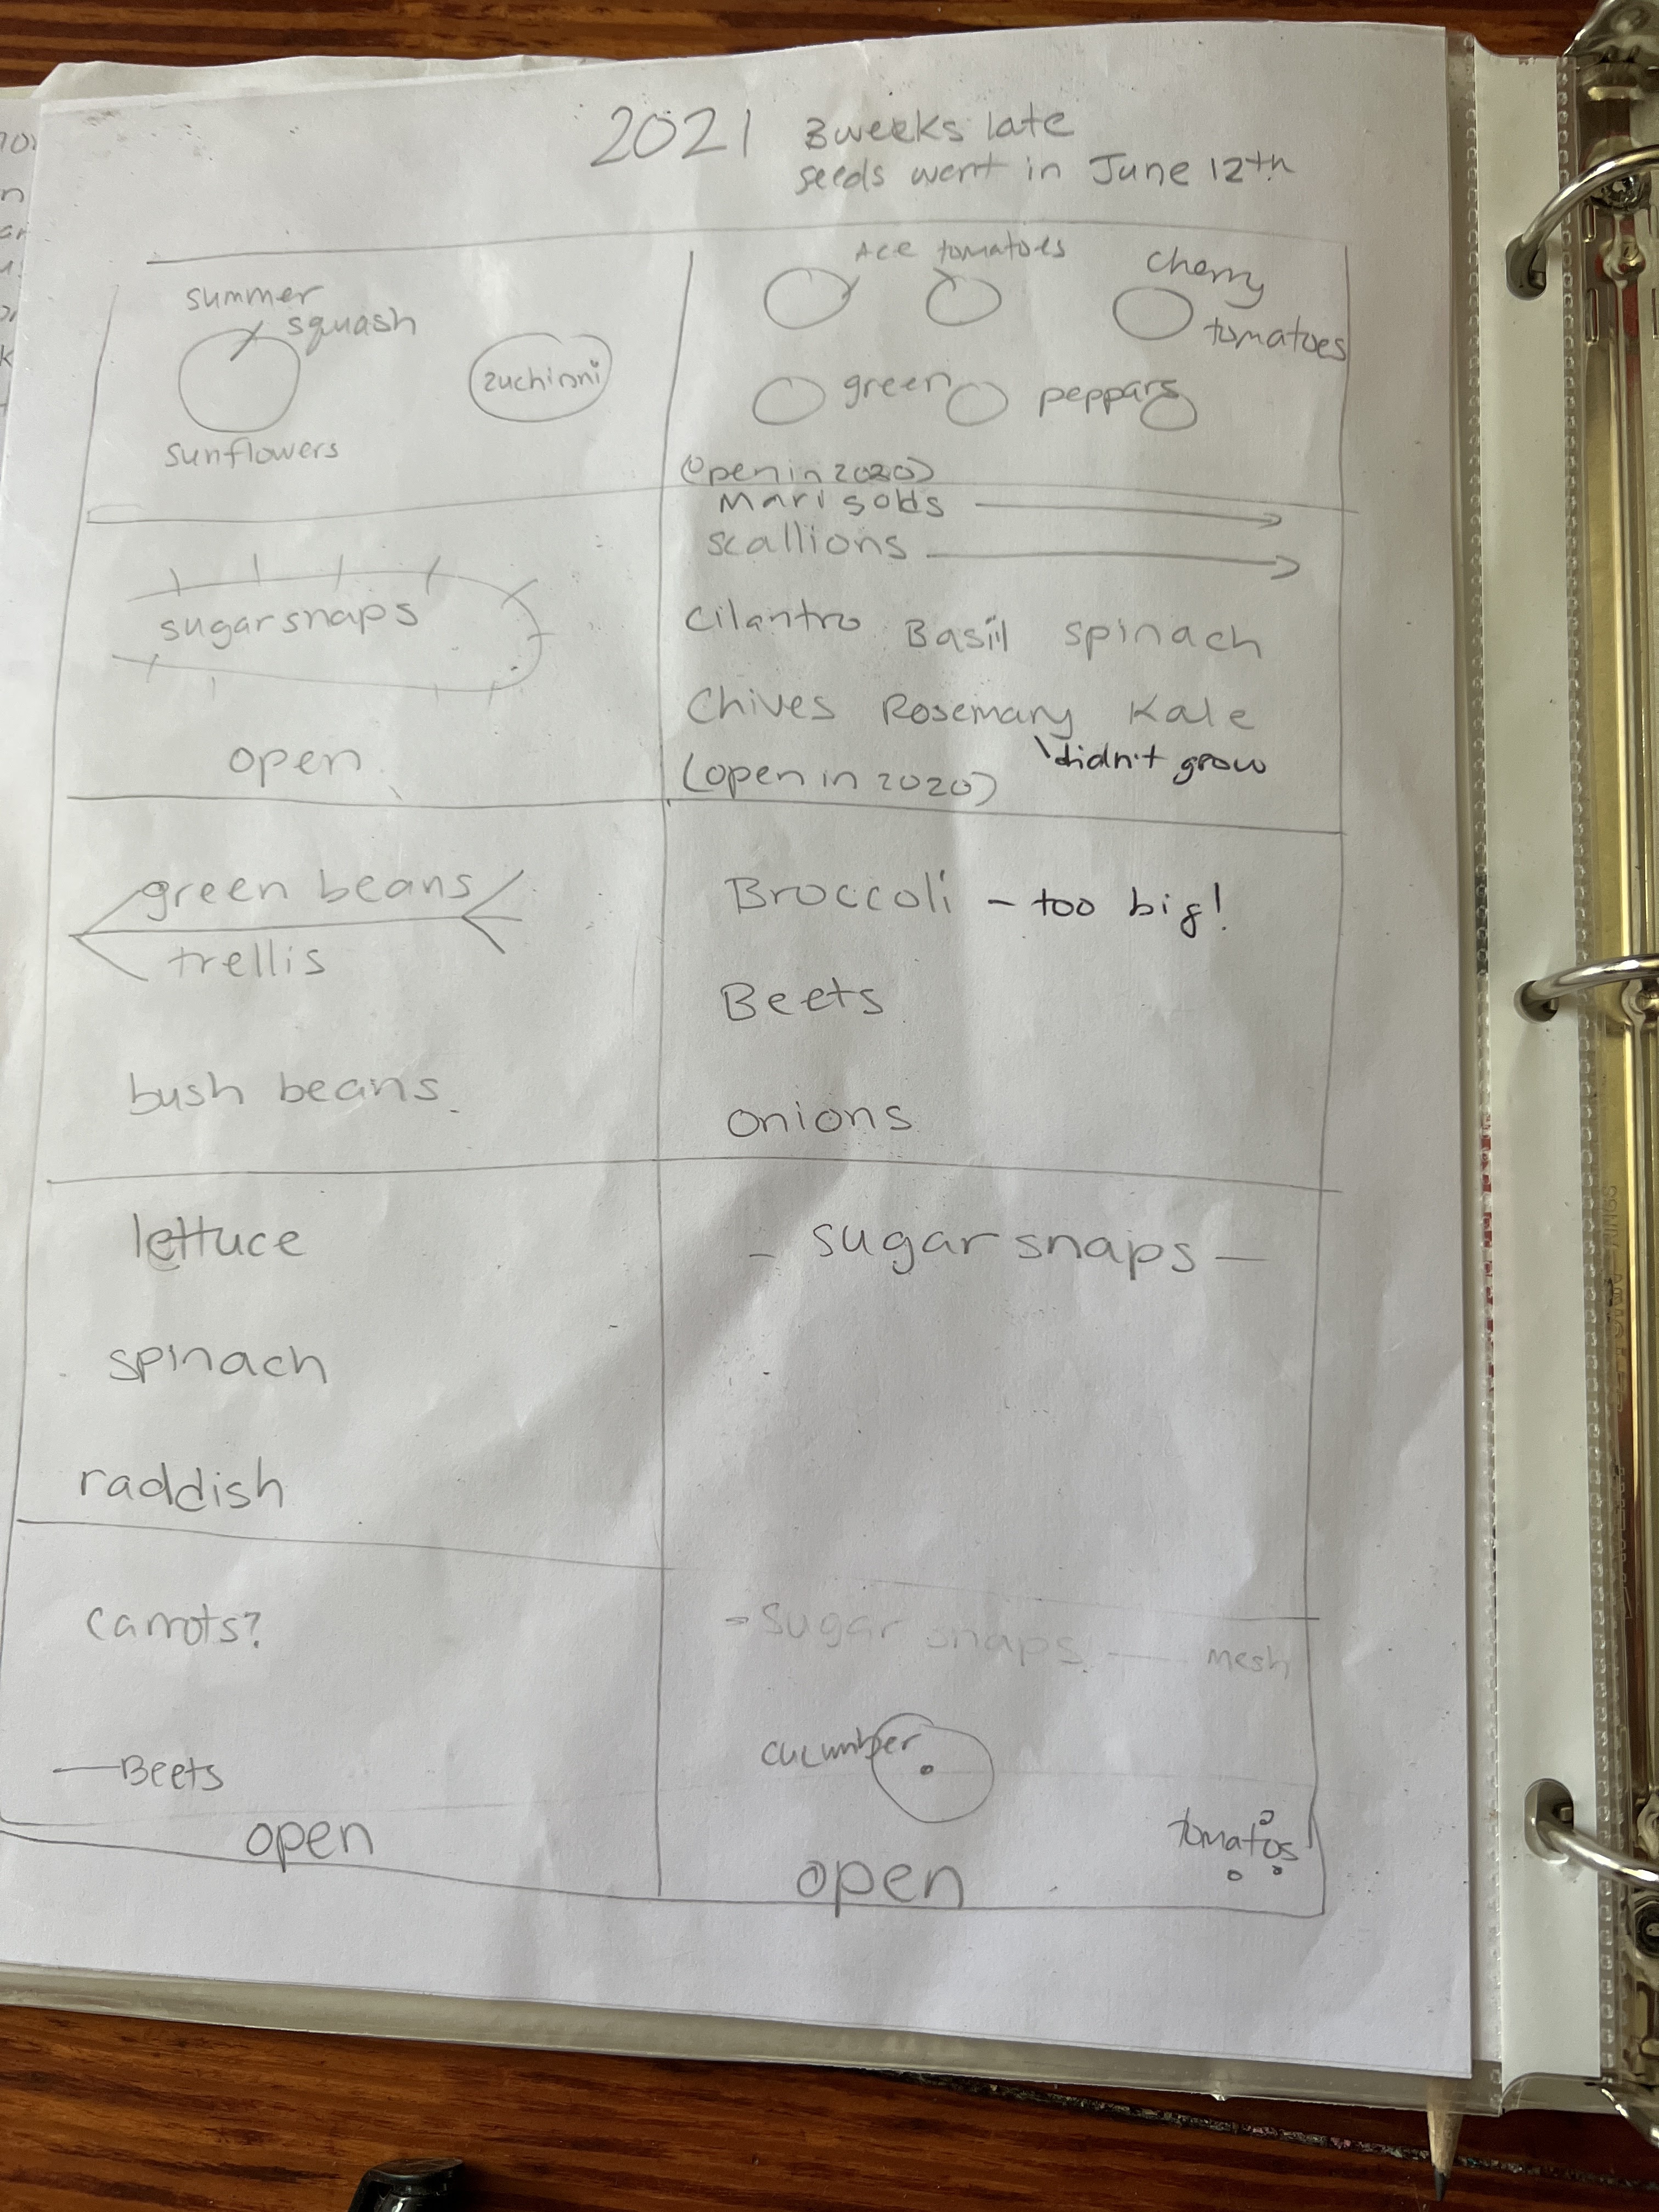 2021 3 weeks late
seeds went in June 12th
summer
squash
zuchinni
sunflowers
Ace tomatoes
cherry
tomatoes
green peppars
(open in 2020)
Marigolds
scallions
sugar snaps
open
Cilantro Basil spinach
Chives Rosemary Kale
didn't grow
(open in 2020)
green beans
trellis
bush beans
Broccoli - too big!
Beets
onions
lettuce
spinach
raddish
- sugar snaps -
carrots?
Beets
open
- sugar snaps - mesh
cucumber
tomatos
open